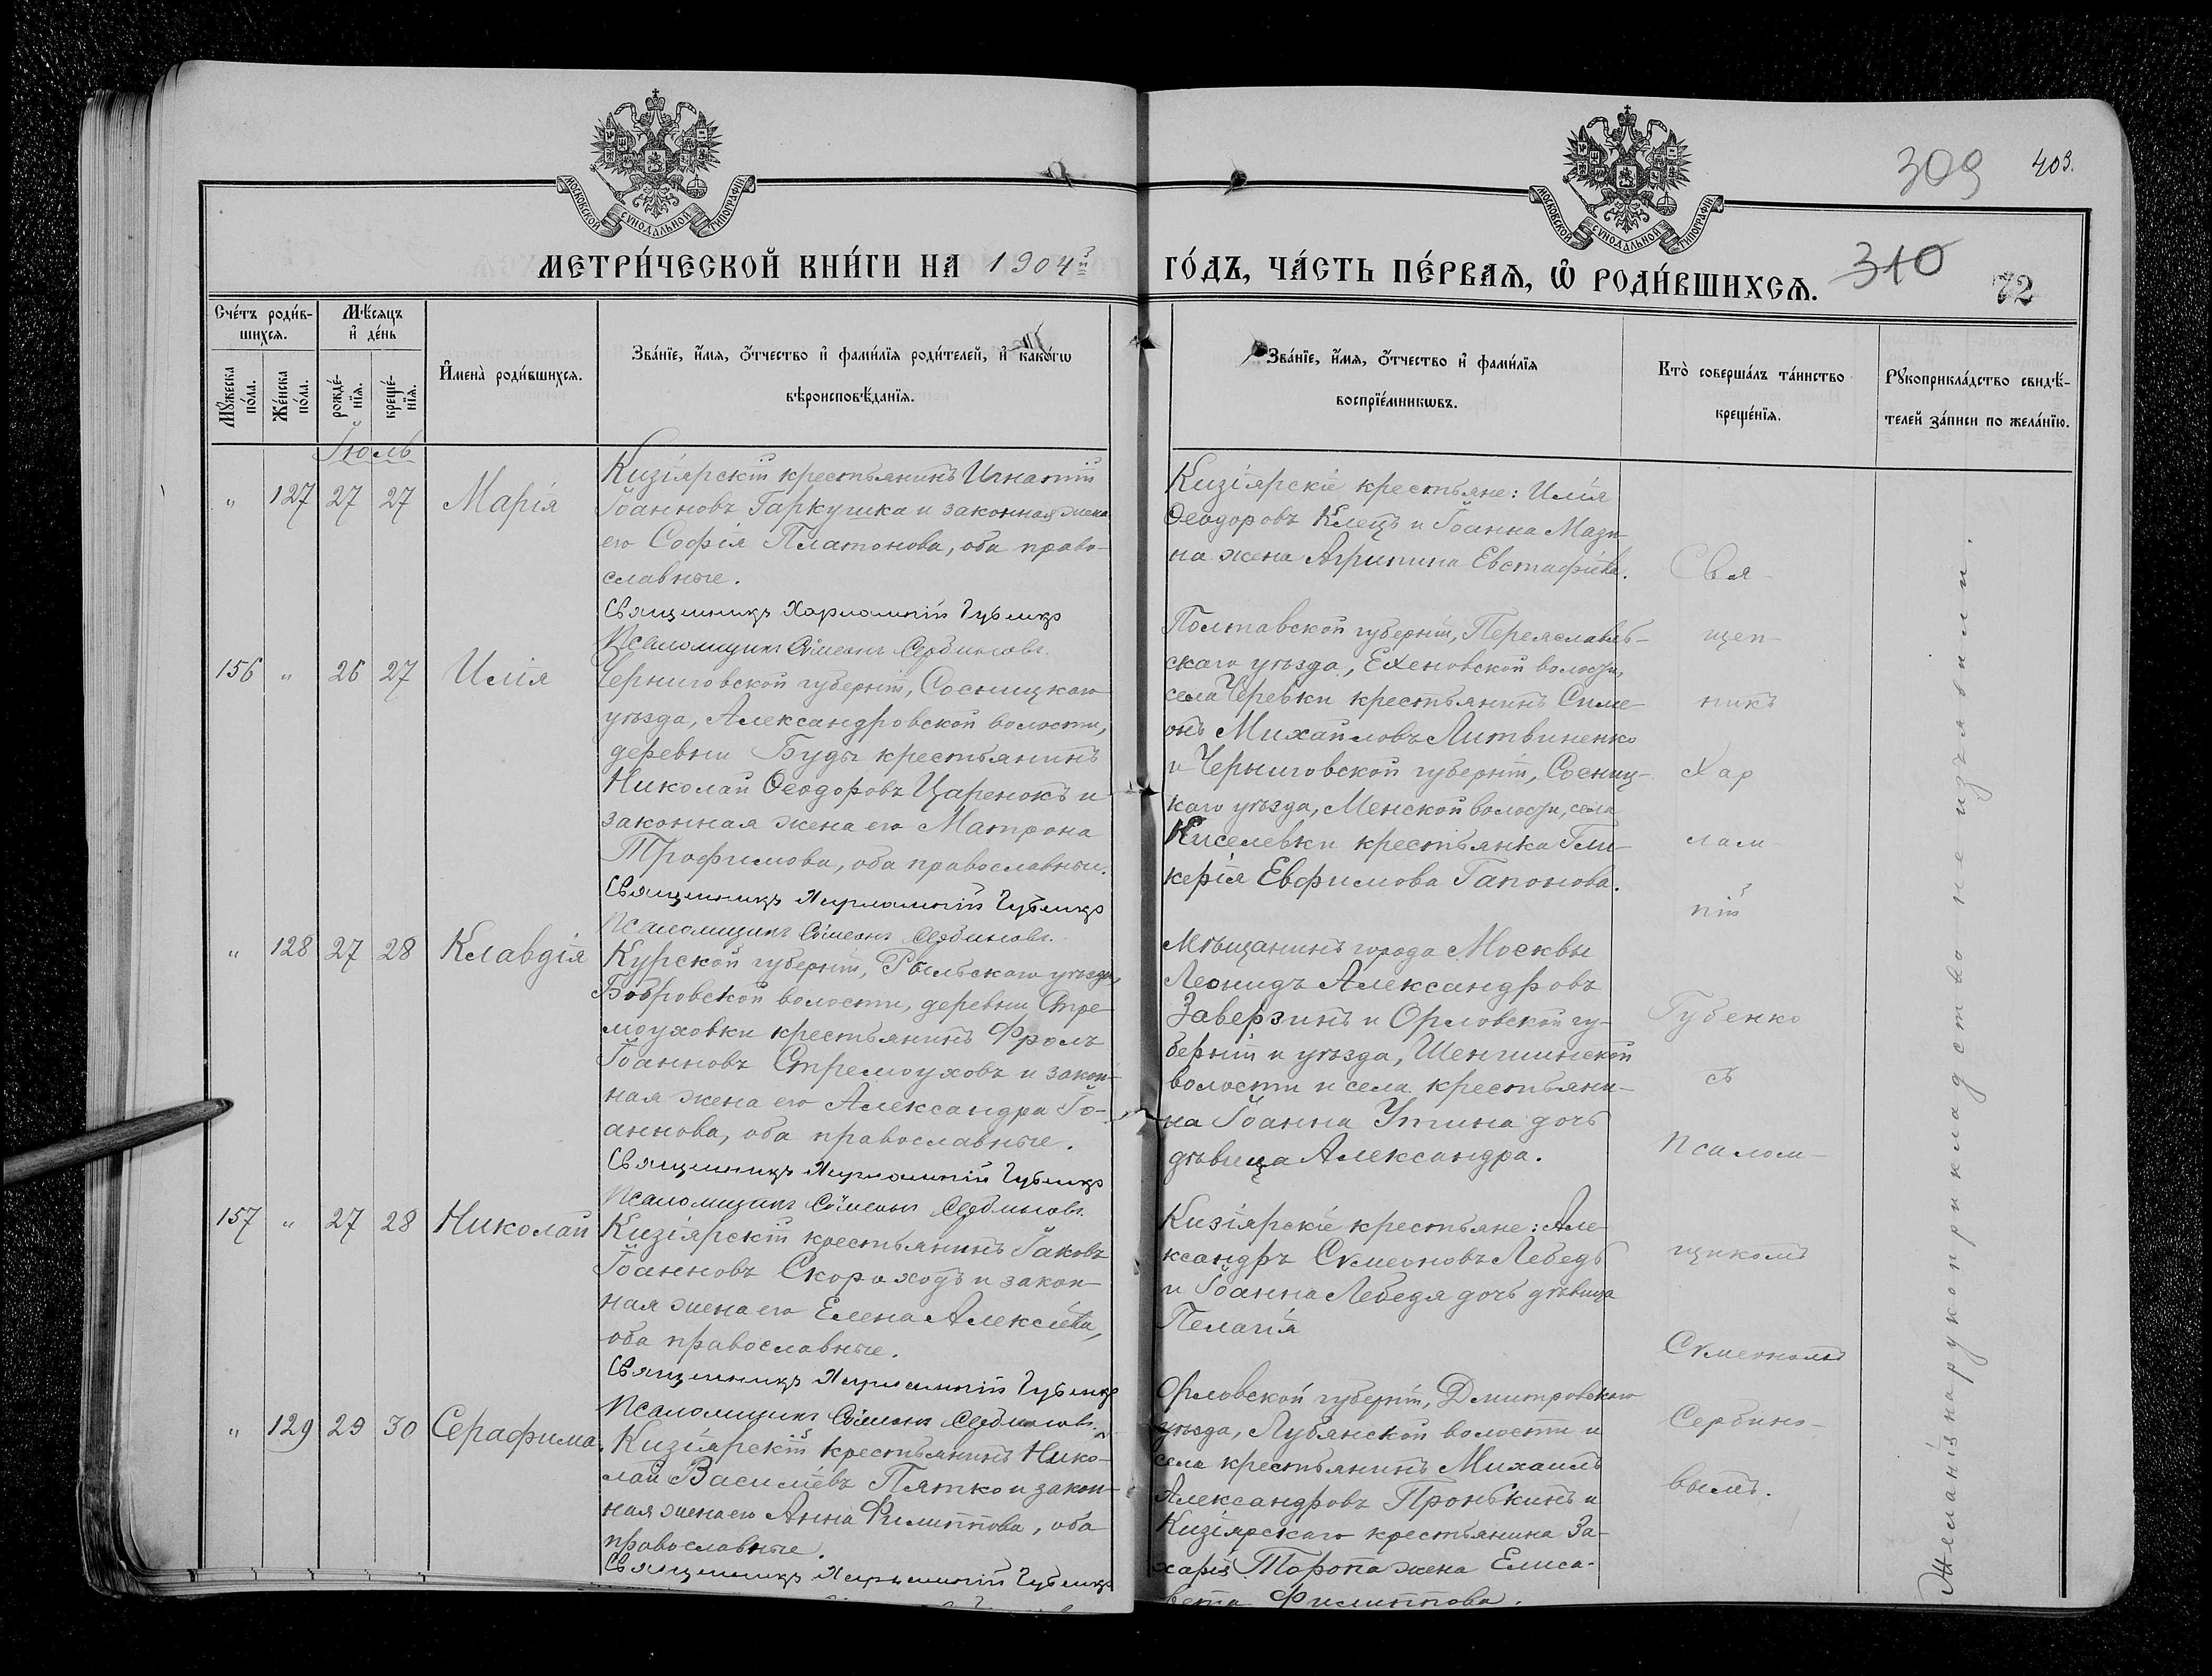 309
403.
МОСКОВСКОЙ СѴНОДАЛЬНОЙ ТИПОГРАФІИ
МОСКОВСКОЙ СѴНОДАЛЬНОЙ ТИПОГРАФІИ
МЕТРИ́ЧЕСКОЙ КНИ́ГИ НА 1904й
ГО́ДЪ, ЧА́СТЬ ПЕ́РВАѦ, Ѡ РОДИ́ВШИХСѦ.
310
72
Сче́тъ роди́в-
шихсѧ.
Мѣ́сѧцъ
и҆ де́нь
Мꙋ́жеска
по́ла.
Же́нска
по́ла.
рожде́-
нїѧ.
креще́-
нїѧ.
И҆мена̀ роди́вшихсѧ.
Зва́нїе, и҆́мѧ, ѻ҆́тчество и҆ фами́лїѧ роди́телей, и҆ како́гѡ
вѣроисповѣ́данїѧ.
Зва́нїе, и҆́мѧ, ѻ҆́тчество и҆ фами́лїѧ
воспрїе́мникѡвъ.
Кто̀ соверша́лъ та́инство
креще́нїѧ.
Рꙋкоприкла́дство свидѣ́-
телей за́писи по жела́нїю.
Іюль
" 127 27 27 Марія
Кизіярскій крестьянинъ Игнатій
Іоанновъ Гаркушка и законная жена
его Софія Платонова, оба право-
славные.
Священникъ Харлампій Губенко
Псаломщикъ Сѵмеонъ Сербиновъ.
Кизіярскіе крестьяне: Илія
Ѳеодоровъ Клецъ и Іоанна Мази-
на жена Агрипина Евстафіева.
156 " 26 27 Илія
Черниговской губерніи, Сосницкаго
уѣзда, Александровской волости,
деревни Буды крестьянинъ
Николай Ѳеодоровъ Царенокъ и
законная жена его Матрона
Трофимова, оба православные.
Священникъ Харлампій Губенко
Псаломщикъ Сѵмеонъ Сербиновъ.
Полтавской губерніи, Переяславль-
скаго уѣзда, волости,
села Черевки крестьянинъ Симе-
онъ Михайловъ Литвиненко
и Черниговской губерніи, Сосниц-
каго уѣзда, Менской волости, села
Киселевки крестьянка Гли-
керія Евфимова Гапонова.
" 128 27 28 Клавдія
Курской губерніи, Рыльскаго уѣзда,
Бобровской волости, деревни Стре-
моуховки крестьянинъ Фролъ
Іоанновъ Стремоуховъ и закон-
ная жена его Александра Іо-
аннова, оба православные.
Священникъ Харлампій Губенко
Псаломщикъ Сѵмеонъ Сербиновъ.
Мѣщанинъ города Москвы
Леонидъ Александровъ
Заверзинъ и Орловской гу-
берніи и уѣзда, Шеншинской
волости и села крестьяни-
на Іоанна Утина дочь
дѣвица Александра.
157 " 27 28 Николай
Кизіярскій крестьянинъ Іаковъ
Іоанновъ Скороходъ и закон-
ная жена его Елена Алексіева,
оба православные.
Священникъ Харлампій Губенко
Псаломщикъ Сѵмеонъ Сербиновъ.
Кизіярскіе крестьяне: Але-
ксандръ Сѵмеоновъ Лебедь
и Іоанна Лебедя дочь дѣвица
Пелагія
" 129 29 30 Серафима
Кизіярскій крестьянинъ Нико-
лай Василіевъ Пятко и закон-
ная жена его Анна Филиппова, оба
православные.
Священникъ Харлампій Губенко
Орловской губерніи, Дмитровскаго
уѣзда, Лубянской волости и
села крестьянинъ Михаилъ
Александровъ Пронькинъ и
Кизіярскаго крестьянина За-
харіѣ Торопа жена Елиса-
вета Филиппова.
Свя-
щен-
никъ
Хар
лам-
пій
Губенко
съ
Псалом-
щикомъ
Сѵмеономъ
Сербино-
вымъ.
Желанія на рукоприкладство не изъявили.